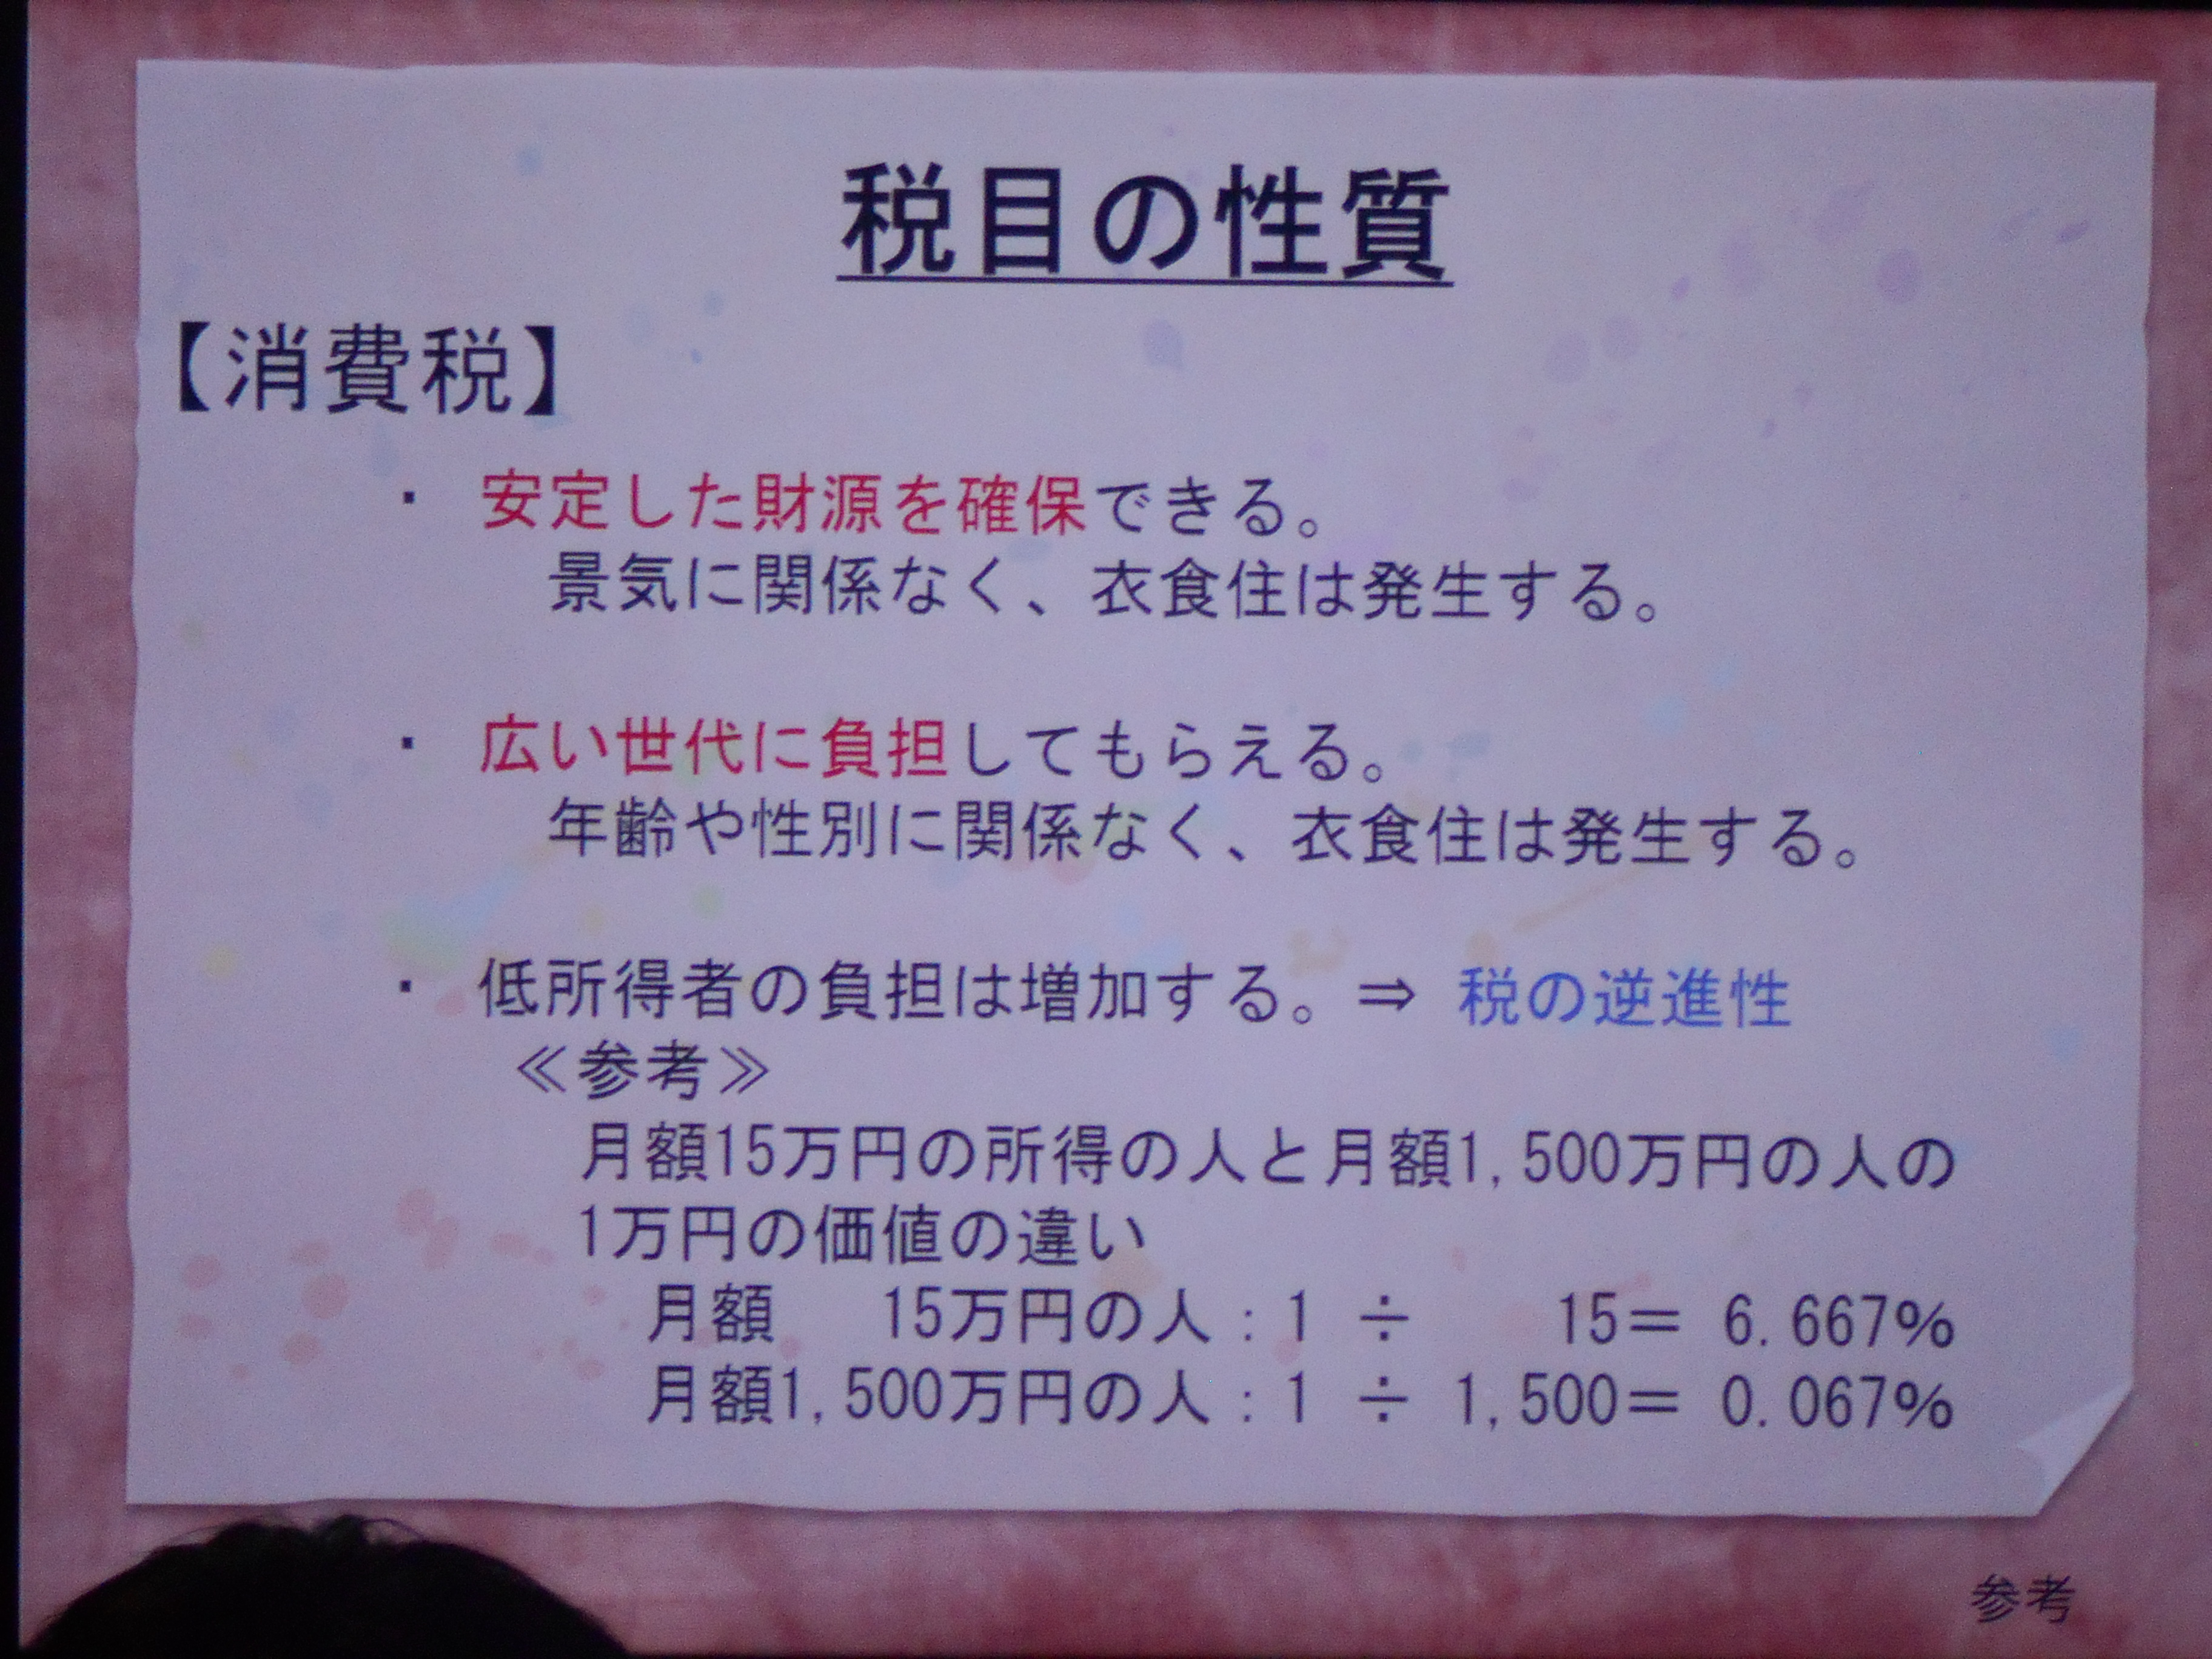 税目の性質
【消費税】
・ 安定した財源を確保できる。
景気に関係なく、衣食住は発生する。
・ 広い世代に負担してもらえる。
年齢や性別に関係なく、衣食住は発生する。
・ 低所得者の負担は増加する。⇒ 税の逆進性
≪参考≫
月額15万円の所得の人と月額1,500万円の人の
1万円の価値の違い
月額　15万円の人：1 ÷ 15＝ 6.667%
月額1,500万円の人：1 ÷ 1,500＝ 0.067%
参考